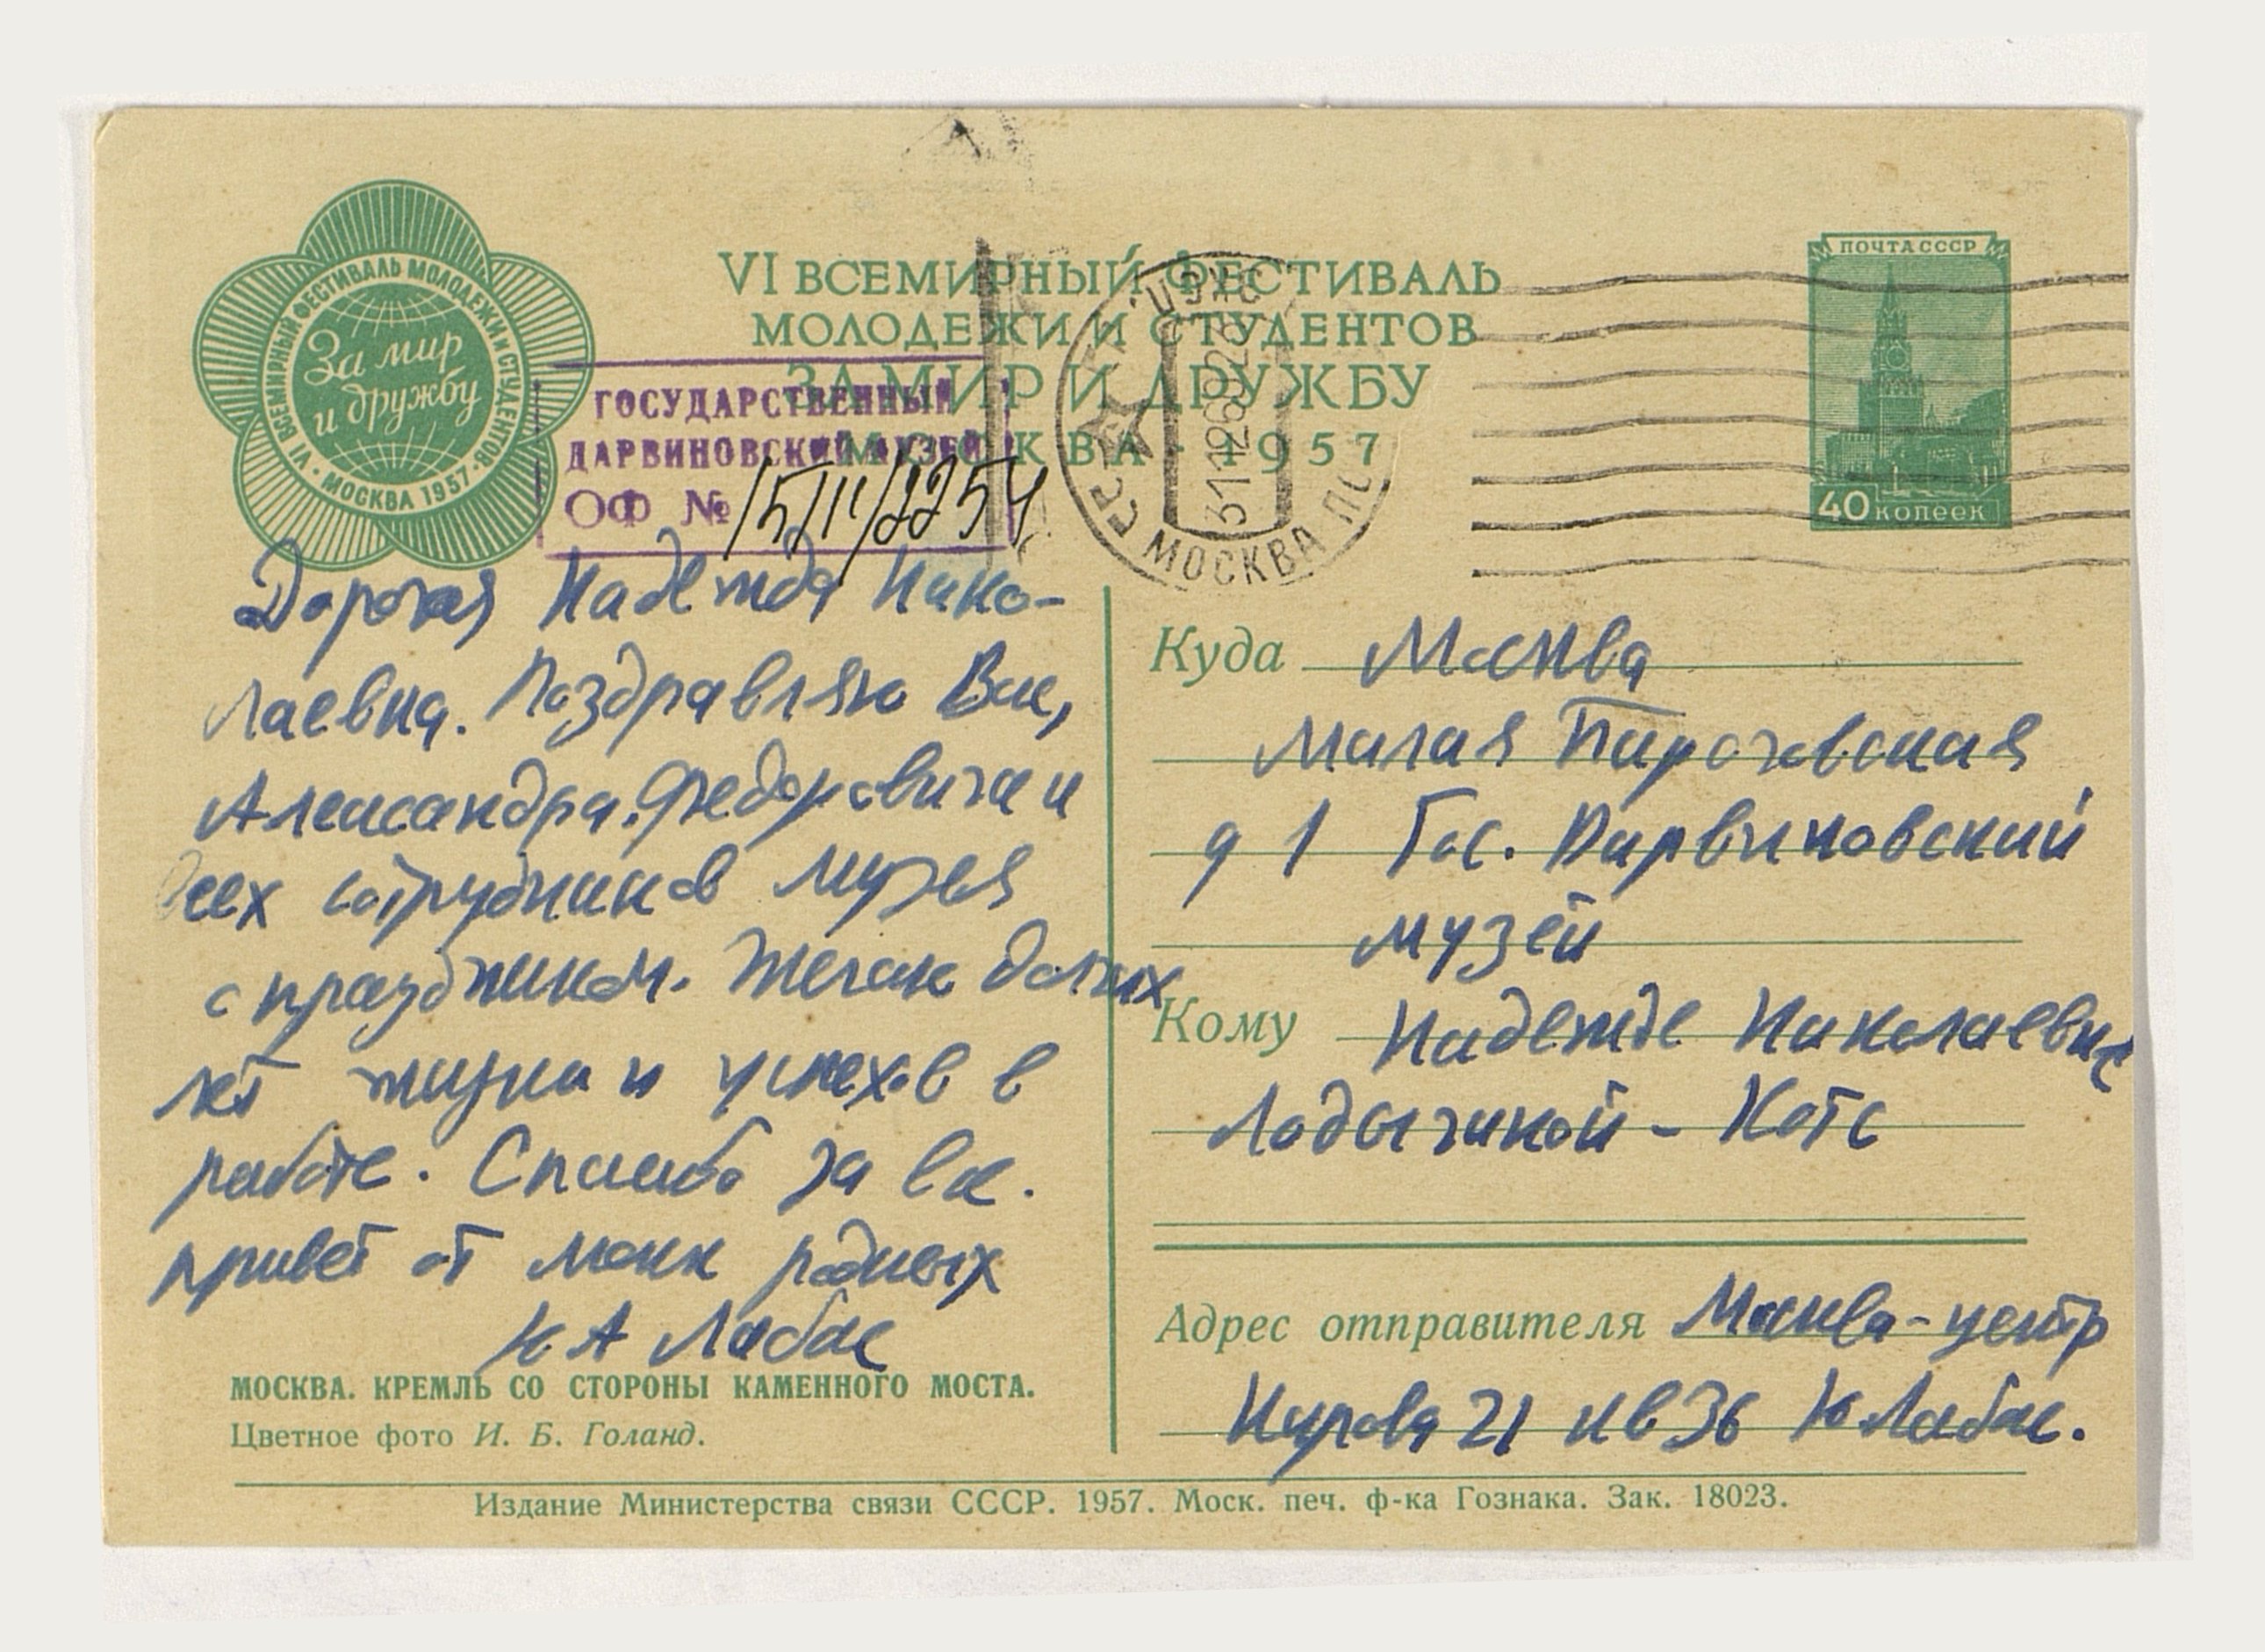 VI ВСЕМИРНЫЙ ФЕСТИВАЛЬ
МОЛОДЕЖИ И СТУДЕНТОВ
ЗА МИР И ДРУЖБУ
МОСКВА - 1957
VI ВСЕМИРНЫЙ ФЕСТИВАЛЬ МОЛОДЕЖИ И СТУДЕНТОВ
МОСКВА 1957
За мир
и дружбу
ГОСУДАРСТВЕННЫЙ
ДАРВИНОВСКИЙ МУЗЕЙ
ОФ №
СССР
МОСКВА
ПОЧТА СССР
40 копеек
Дорогая Надежда Нико-
лаевна. Поздравляю Вас,
Александра Федоровича и
всех сотрудников музея
с праздником. Желаю долгих
лет жизни и успехов в
работе. Спасибо за вс.
привет от моих родных
Ю А Лабас
МОСКВА. КРЕМЛЬ СО СТОРОНЫ КАМЕННОГО МОСТА.
Цветное фото И. Б. Голанд.
Куда Москва
Малая Пироговская
д 1 Гос. Дарвиновский
музей
Кому Надежде Николаевне
Ладыгиной - Котс
Адрес отправителя Москва-центр
Кирова 21 кв 36 Ю Лабас.
Издание Министерства связи СССР. 1957. Моск. печ. ф-ка Гознака. Зак. 18023.